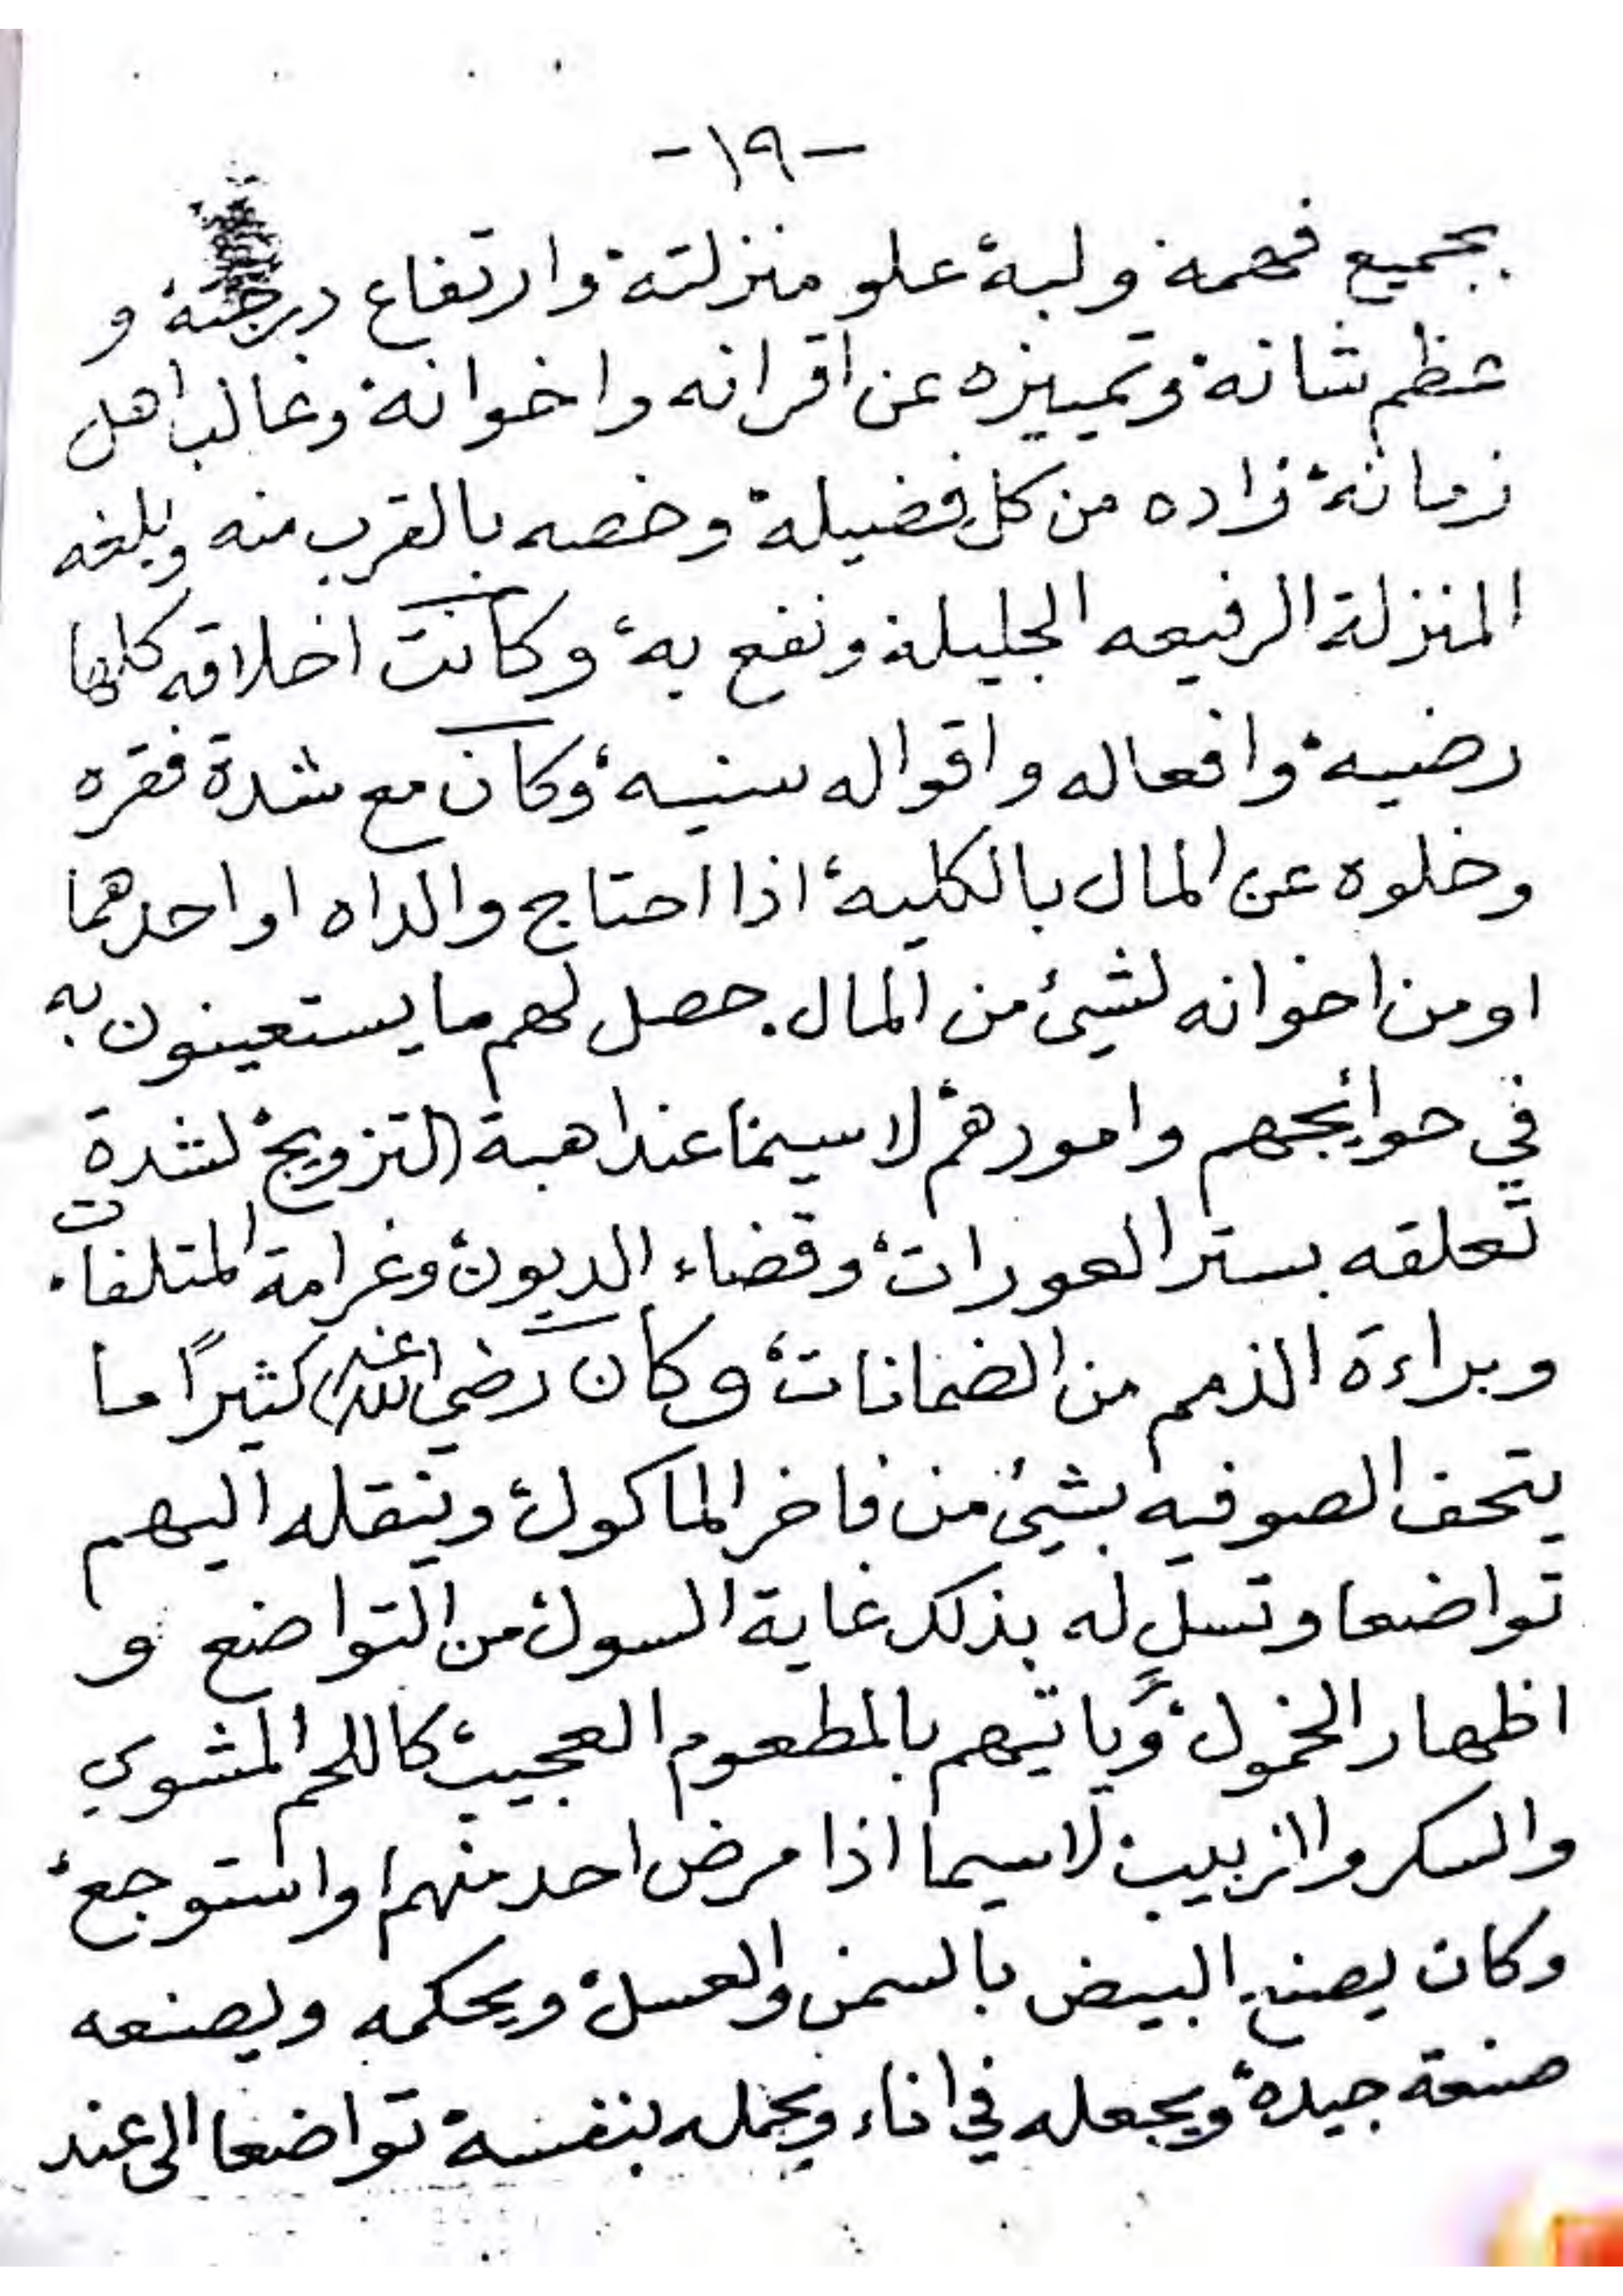 -١٩-
بجميع فهمه ولبه، علو منزلته وارتفاع درجته، و
عظم شانه، وتمييزه عن اقرانه واخوانه، وغالب اهل
زمانه، زاده من كل فضيلة، وخصه بالقرب منه وبلغه
المنزلة الرفيعه الجليلة ونفع به، وكانت اخلاقه كلها
رضيه، وافعاله واقواله سنيه، وكان مع شدة فقره
وخلوه عن المال بالكليه، اذا احتاج والداه او احدهما
او من اخوانه لشيئ من المال. حصل لهم ما يستعينون به
في حوايجهم وامورهم، لا سيما عند اهبة التزويج، لشدة
تعلقه بستر العورات، وقضاء الديون، وغرامة المتلفات.
وبراءة الذمم من الضمانات، وكان رضي الله عنه كثيرًا ما
يتحف الصوفيه بشيئ من فاخر الماكول، وينقله اليهم
تواضعا وتسل له بذلك غاية السول، من التواضع و
اظهار الخمول، وياتيهم بالمطعوم العجيب، كاللحم المشوي
والسكر والزبيب، لاسيما اذا مرض احد منهم، او استوجع،
وكان يصنع البيض بالسمن والعسل، ويحكمه ويصنعه
صنعة جيده، ويجعله في اناء ويحمله بنفسه، تواضعا الى عند